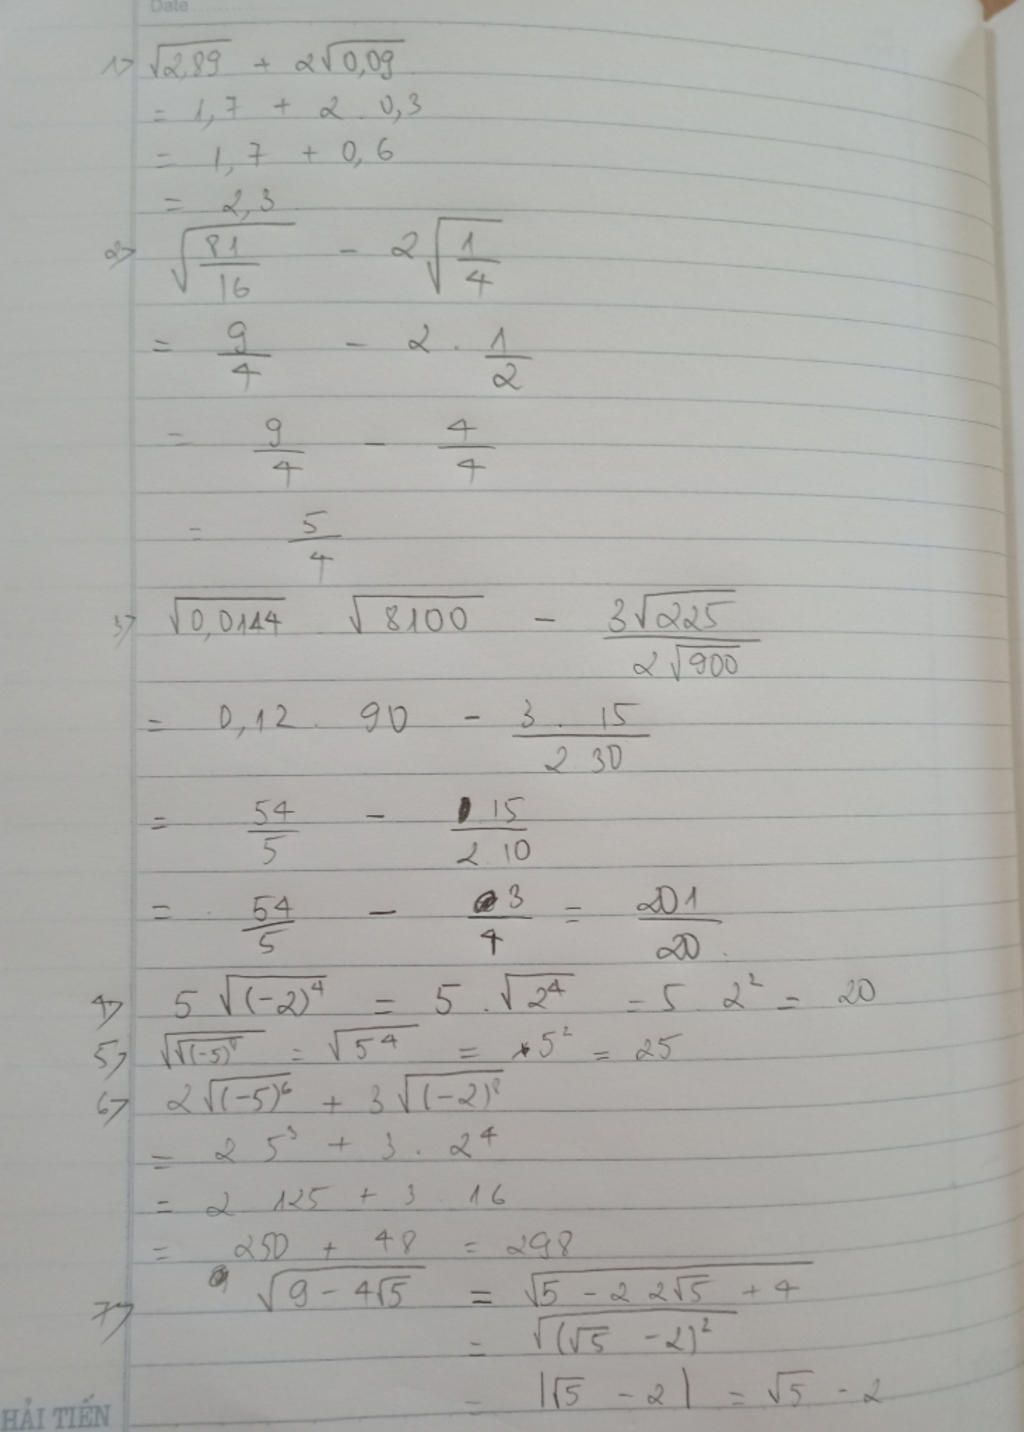 Date
1) √2,89 + 2√0,09
= 1,7 + 2 . 0,3
= 1,7 + 0,6
= 2,3
2) √(81/16) - 2√(1/4)
= 9/4 - 2 . 1/2
= 9/4 - 4/4
= 5/4
3) √0,0144 √8100 - 3√225 / 2√900
= 0,12 . 90 - 3 . 15 / 2 30
= 54/5 - 15 / 2.10
= 54/5 - 3/4 = 201/20
4) 5√(-2)⁴ = 5 . √2⁴ = 5 2² = 20
5) √√(-5)⁸ = √5⁴ = 5² = 25
6) 2√(-5)⁶ + 3√(-2)⁸
= 2 5³ + 3 . 2⁴
= 2 125 + 3 16
= 250 + 48 = 298
7) √(9 - 4√5) = √(5 - 2 2√5 + 4)
= √(√5 - 2)²
= |√5 - 2| = √5 - 2
HẢI TIẾN